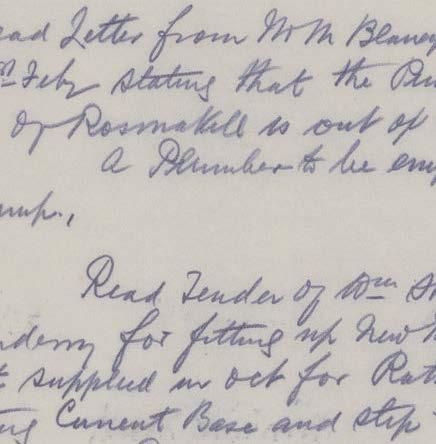 ead Letter from Mr M Blaney
st Feby stating that the Pu
of Rosmakill is out of
A Plumber to be emp
ump.,
Read Tender of Wm S
ndemy for fitting up New
supplied in oct for Rat
ing Cement Base and step